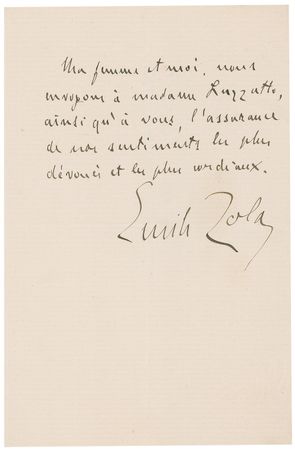 Ma femme et moi, nous
envoyons à madame Luzzatto,
ainsi qu'à vous, l'assurance
de nos sentiments les plus
dévoués et les plus cordiaux.
Emile Zola